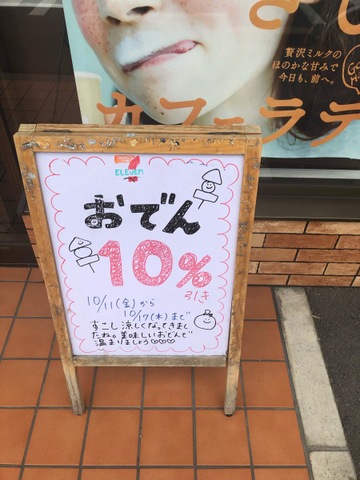 贅沢ミルクの
ほのかな甘みで
今日も、前へ。
カフェラテ
ELEVEn
おでん
10%
引き
10/11(金)から
10/17(木)まで
すこし涼しくなってきまし
たね。美味しいおでんで
温まりましょう♡♡♡